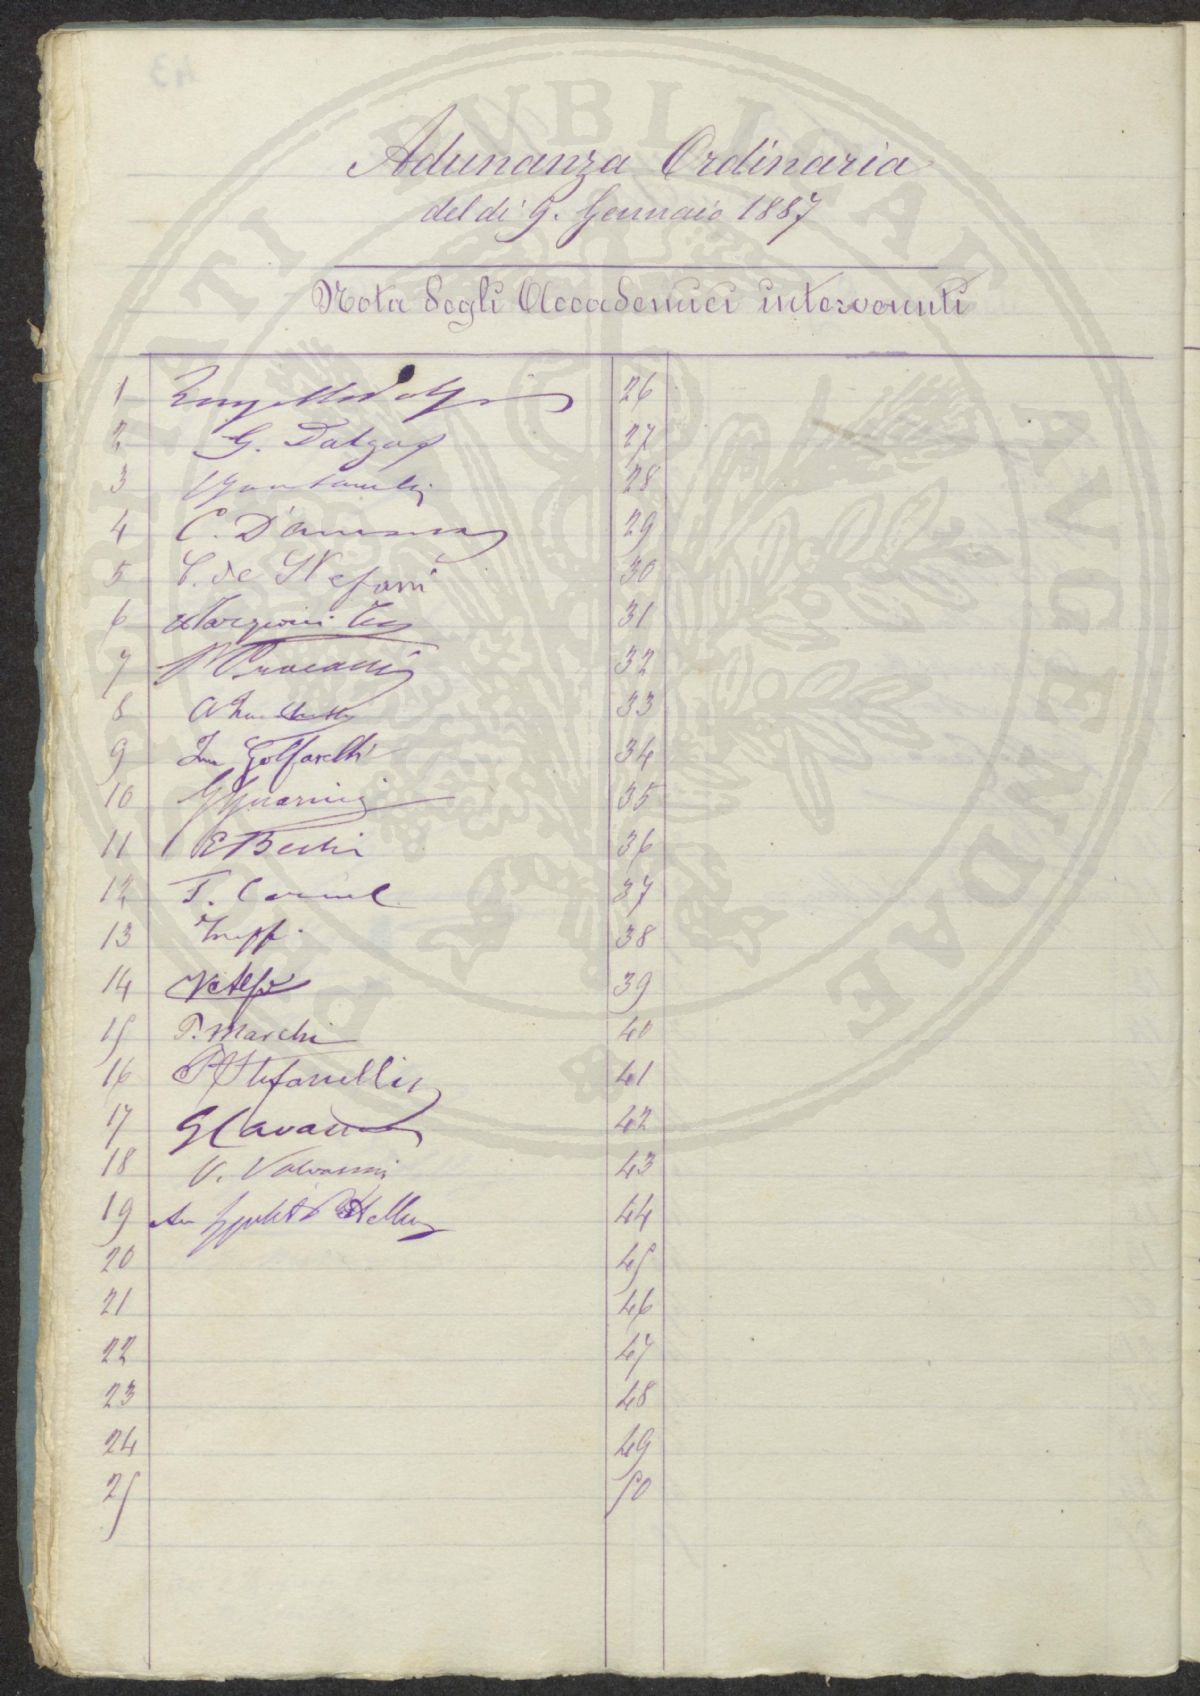 Adunanza Ordinaria
del dì 9. Gennaio 1887
Nota degli Accademici intervenuti
1
2 G. Dalgas
3
4 C. D'Ancona
5 C. de Stefani
6 Targioni Tozz
7
8
9 Inn Golfarelli
10 G Guarnieri
11 E Bechi
12 T. Caruel
13
14
15 P. Marchi
16 P Stefanelli
17 G Cavanna
18 V. Valvassori
19
20
21
22
23
24
25
26
27
28
29
30
31
32
33
34
35
36
37
38
39
40
41
42
43
44
45
46
47
48
49
50
PVBLICAE
AVGENDAE
PROSPERITATI